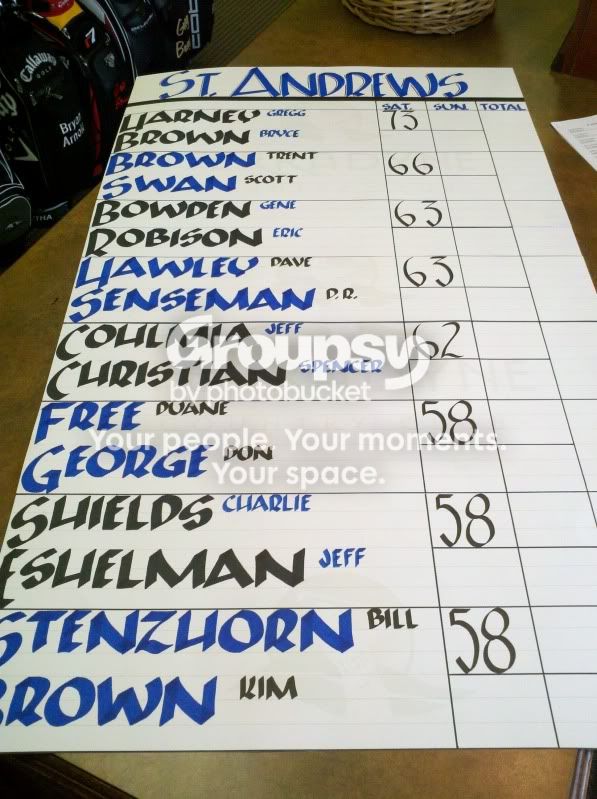 ST. ANDREWS
SAT. SUN. TOTAL
HARNEY GREGG 73
BROWN BRYCE
BROWN TRENT 66
SWAN SCOTT
BOWDEN GENE 63
ROBISON ERIC
HAWLEY DAVE 63
SENSEMAN D.R.
COULMIA JEFF 62
CHRISTIAN SPENCER
FREE DUANE 58
GEORGE DON
SHIELDS CHARLIE 58
ESHELMAN JEFF
STENZHORN BILL 58
BROWN KIM
Callaway
Bryan
Arnold
Groupsy
by photobucket
Your people. Your moments.
Your space.